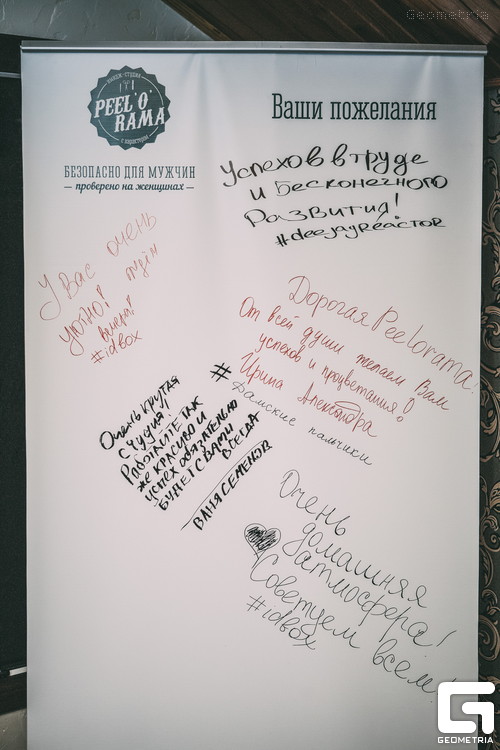 Geometria
PEEL'O'
RAMA
Ваши пожелания
БЕЗОПАСНО ДЛЯ МУЖЧИН
— проверено на женщинах —
Успехов в труде
и бесконечного
развития!
#deejayReactor
У вас очень
уютно! ждём
вечера!
#idbox
Дорогая Peelorama.
От всей души желаем Вам
успехов и процветания!
Ирина Александра
# Дамские пальчики
Очень крутая
студия,
Работайте так
же красиво и
успех обязательно
будет с вами
всегда
Ваня Семенов
Очень
домашняя
атмосфера!
Советуем всем!
#idbox
GEOMETRIA